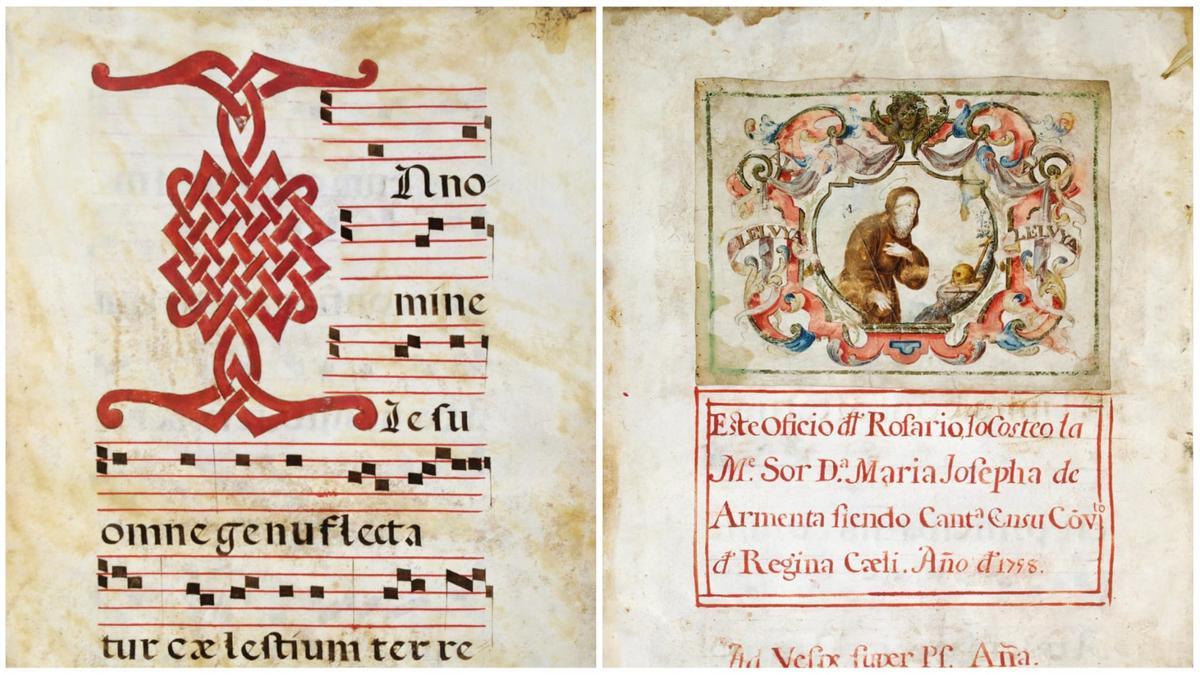 I Nno
mine
Iesu
omne genuflecta
tur cælestium ter re
LELVYA
LELVYA
Este Oficio đł Rosario, lo Costeo la
Mᵉ. Sor Dᵃ. Maria Josepha de
Armenta siendo Cantᵃ. En su Cōvᵗᵒ
đ Regina Cæli. Año đ 1758.
Ad Vesp super Ps. Aña.